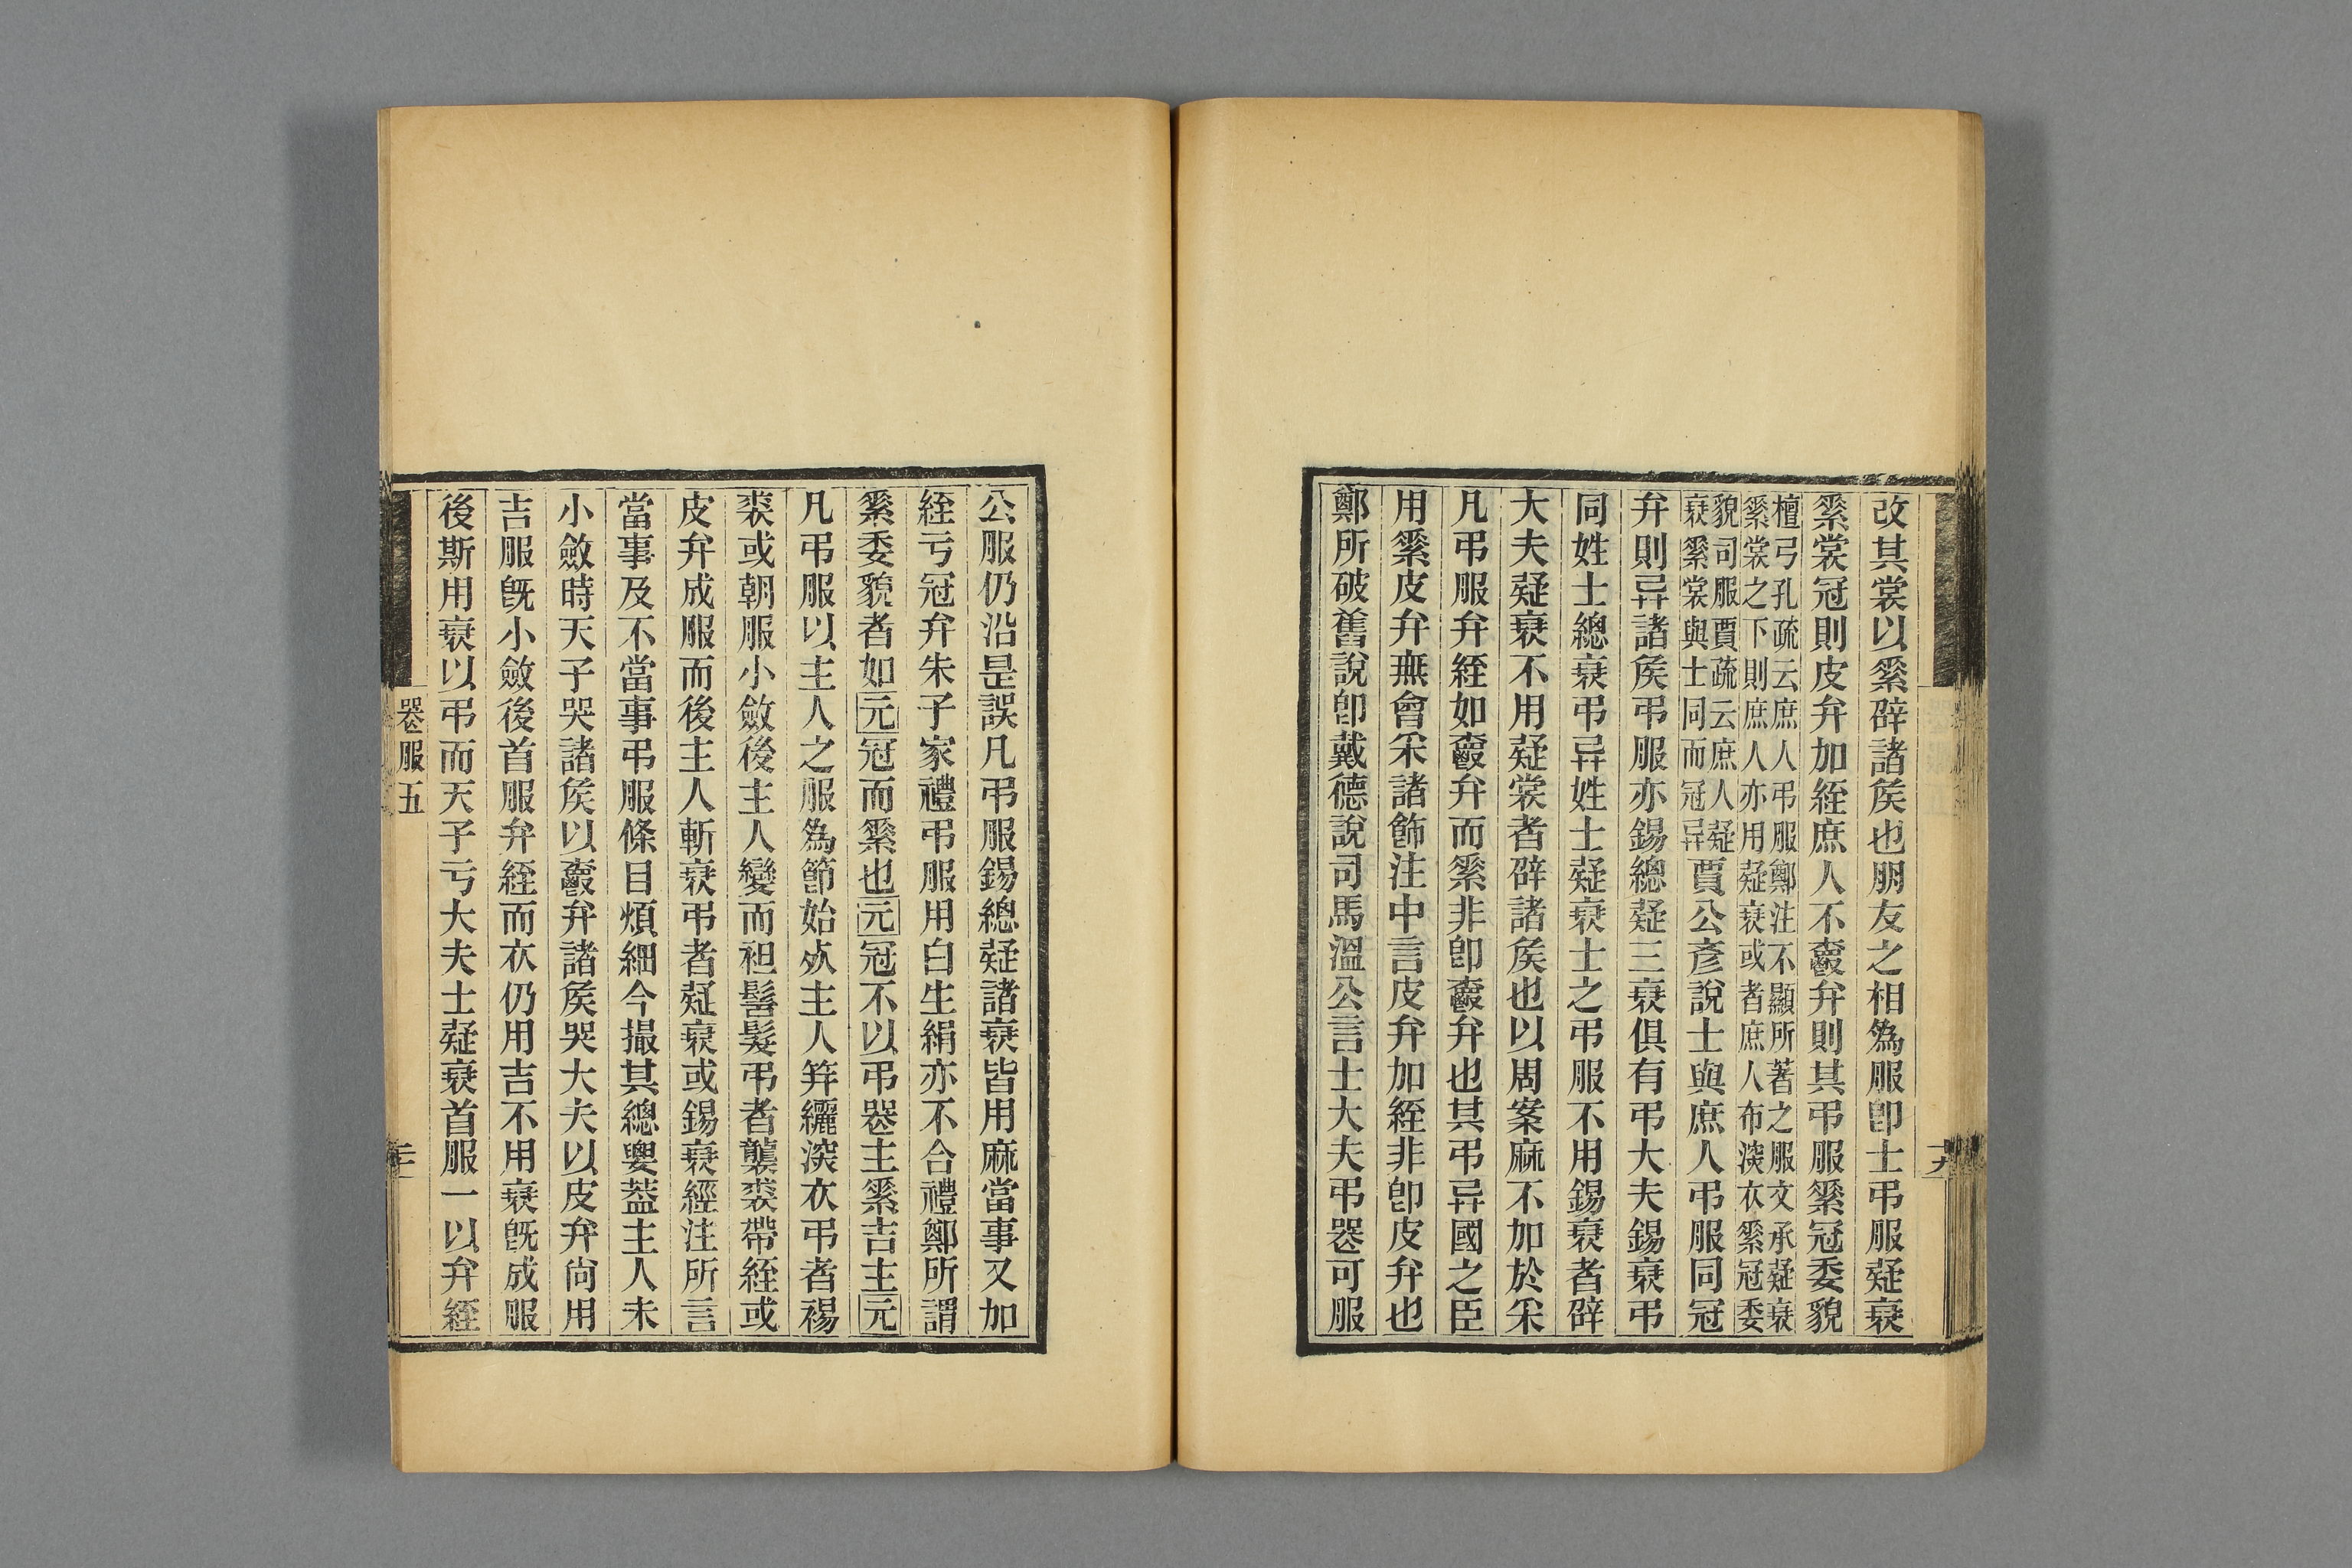 改其裳以緐辟諸矦也朋友之相爲服卽士弔服疑衰
緐裳冠則皮弁加絰庶人不䵻弁則其弔服緐冠委貌
檀弓孔疏云庶人弔服鄭注不顯所著之服文承疑衰
緐裳之下則庶人亦用疑衰或者庶人布深衣緐冠委
貌司服賈疏云庶人疑
衰緐裳與士同而冠异
賈公彥說士與庶人弔服同冠
弁則异諸矦弔服亦錫緦疑三衰俱有弔大夫錫衰弔
同姓士緦衰弔异姓士疑衰士之弔服不用錫衰者辟
大夫疑衰不用疑裳者辟諸矦也以周案麻不加於采
凡弔服弁絰如䵻弁而緐非卽䵻弁也其弔异國之臣
用緐皮弁無會采諸飾注中言皮弁加絰非卽皮弁也
鄭所破舊說卽戴德說司馬溫公言士大夫弔器可服
公服仍沿是誤凡弔服錫緦疑諸衰皆用麻當事又加
絰亏冠弁朱子家禮弔服用白生絹亦不合禮鄭所謂
緐委貌者如元冠而緐也元冠不以弔器主緐吉主元
凡弔服以主人之服爲節始𣦸主人笄纚深衣弔者裼
裘或朝服小斂後主人變而袒髻髮弔者襲裘帶絰或
皮弁成服而後主人斬衰弔者疑衰或錫衰經注所言
當事及不當事弔服條目煩細今撮其總要葢主人未
小斂時天子哭諸矦以䵻弁諸矦哭大夫以皮弁尙用
吉服旣小斂後首服弁絰而衣仍用吉不用衰旣成服
後斯用衰以弔而天子亏大夫士疑衰首服一以弁絰
器服五
二十
十九